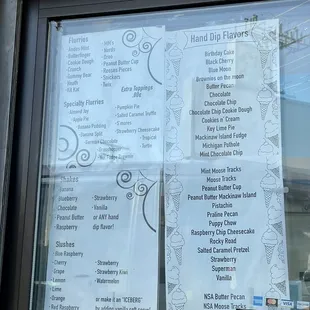 Flurries
Butterfinger
Cookie Dough
Crunch
Gummy Bear
Heath
Kit Kat
M&M's
Nerds
Oreo
Peanut Butter Cup
Reeses Pieces
Snickers
Twix
Extra Toppings
Specialty Flurries
Almond Joy
Apple Pie
Banana Pudding
Banana Split
Pumpkin Pie
Salted Caramel Truffle
S'mores
Strawberry Cheesecake
Tropical
Turtle
Shakes
Banana
Blueberry
Chocolate
Peanut Butter
Raspberry
-Strawberry
-Vanilla
or ANY hand
dip flavor!
Slushes
Blue Raspberry
Cherry
Grape
Lemon
Lime
Orange
Red Raspberry
-Strawberry
-Strawberry Kiwi
-Watermelon
or make it an "ICEBERG"
by adding vanilla soft serve!
Hand Dip Flavors
Birthday Cake
Black Cherry
Blue Moon
Brownies on the moon
Butter Pecan
Chocolate
Chocolate Chip
Chocolate Chip Cookie Dough
Cookies n' Cream
Key Lime Pie
Mackinaw Island Fudge
Michigan Pothole
Mint Chocolate Chip
Mint Moose Tracks
Moose Tracks
Peanut Butter Cup
Peanut Butter Mackinaw Island
Pistachio
Praline Pecan
Puppy Chow
Raspberry Chip Cheesecake
Rocky Road
Salted Caramel Pretzel
Strawberry
Superman
Vanilla
NSA Butter Pecan
NSA Moose Tracks